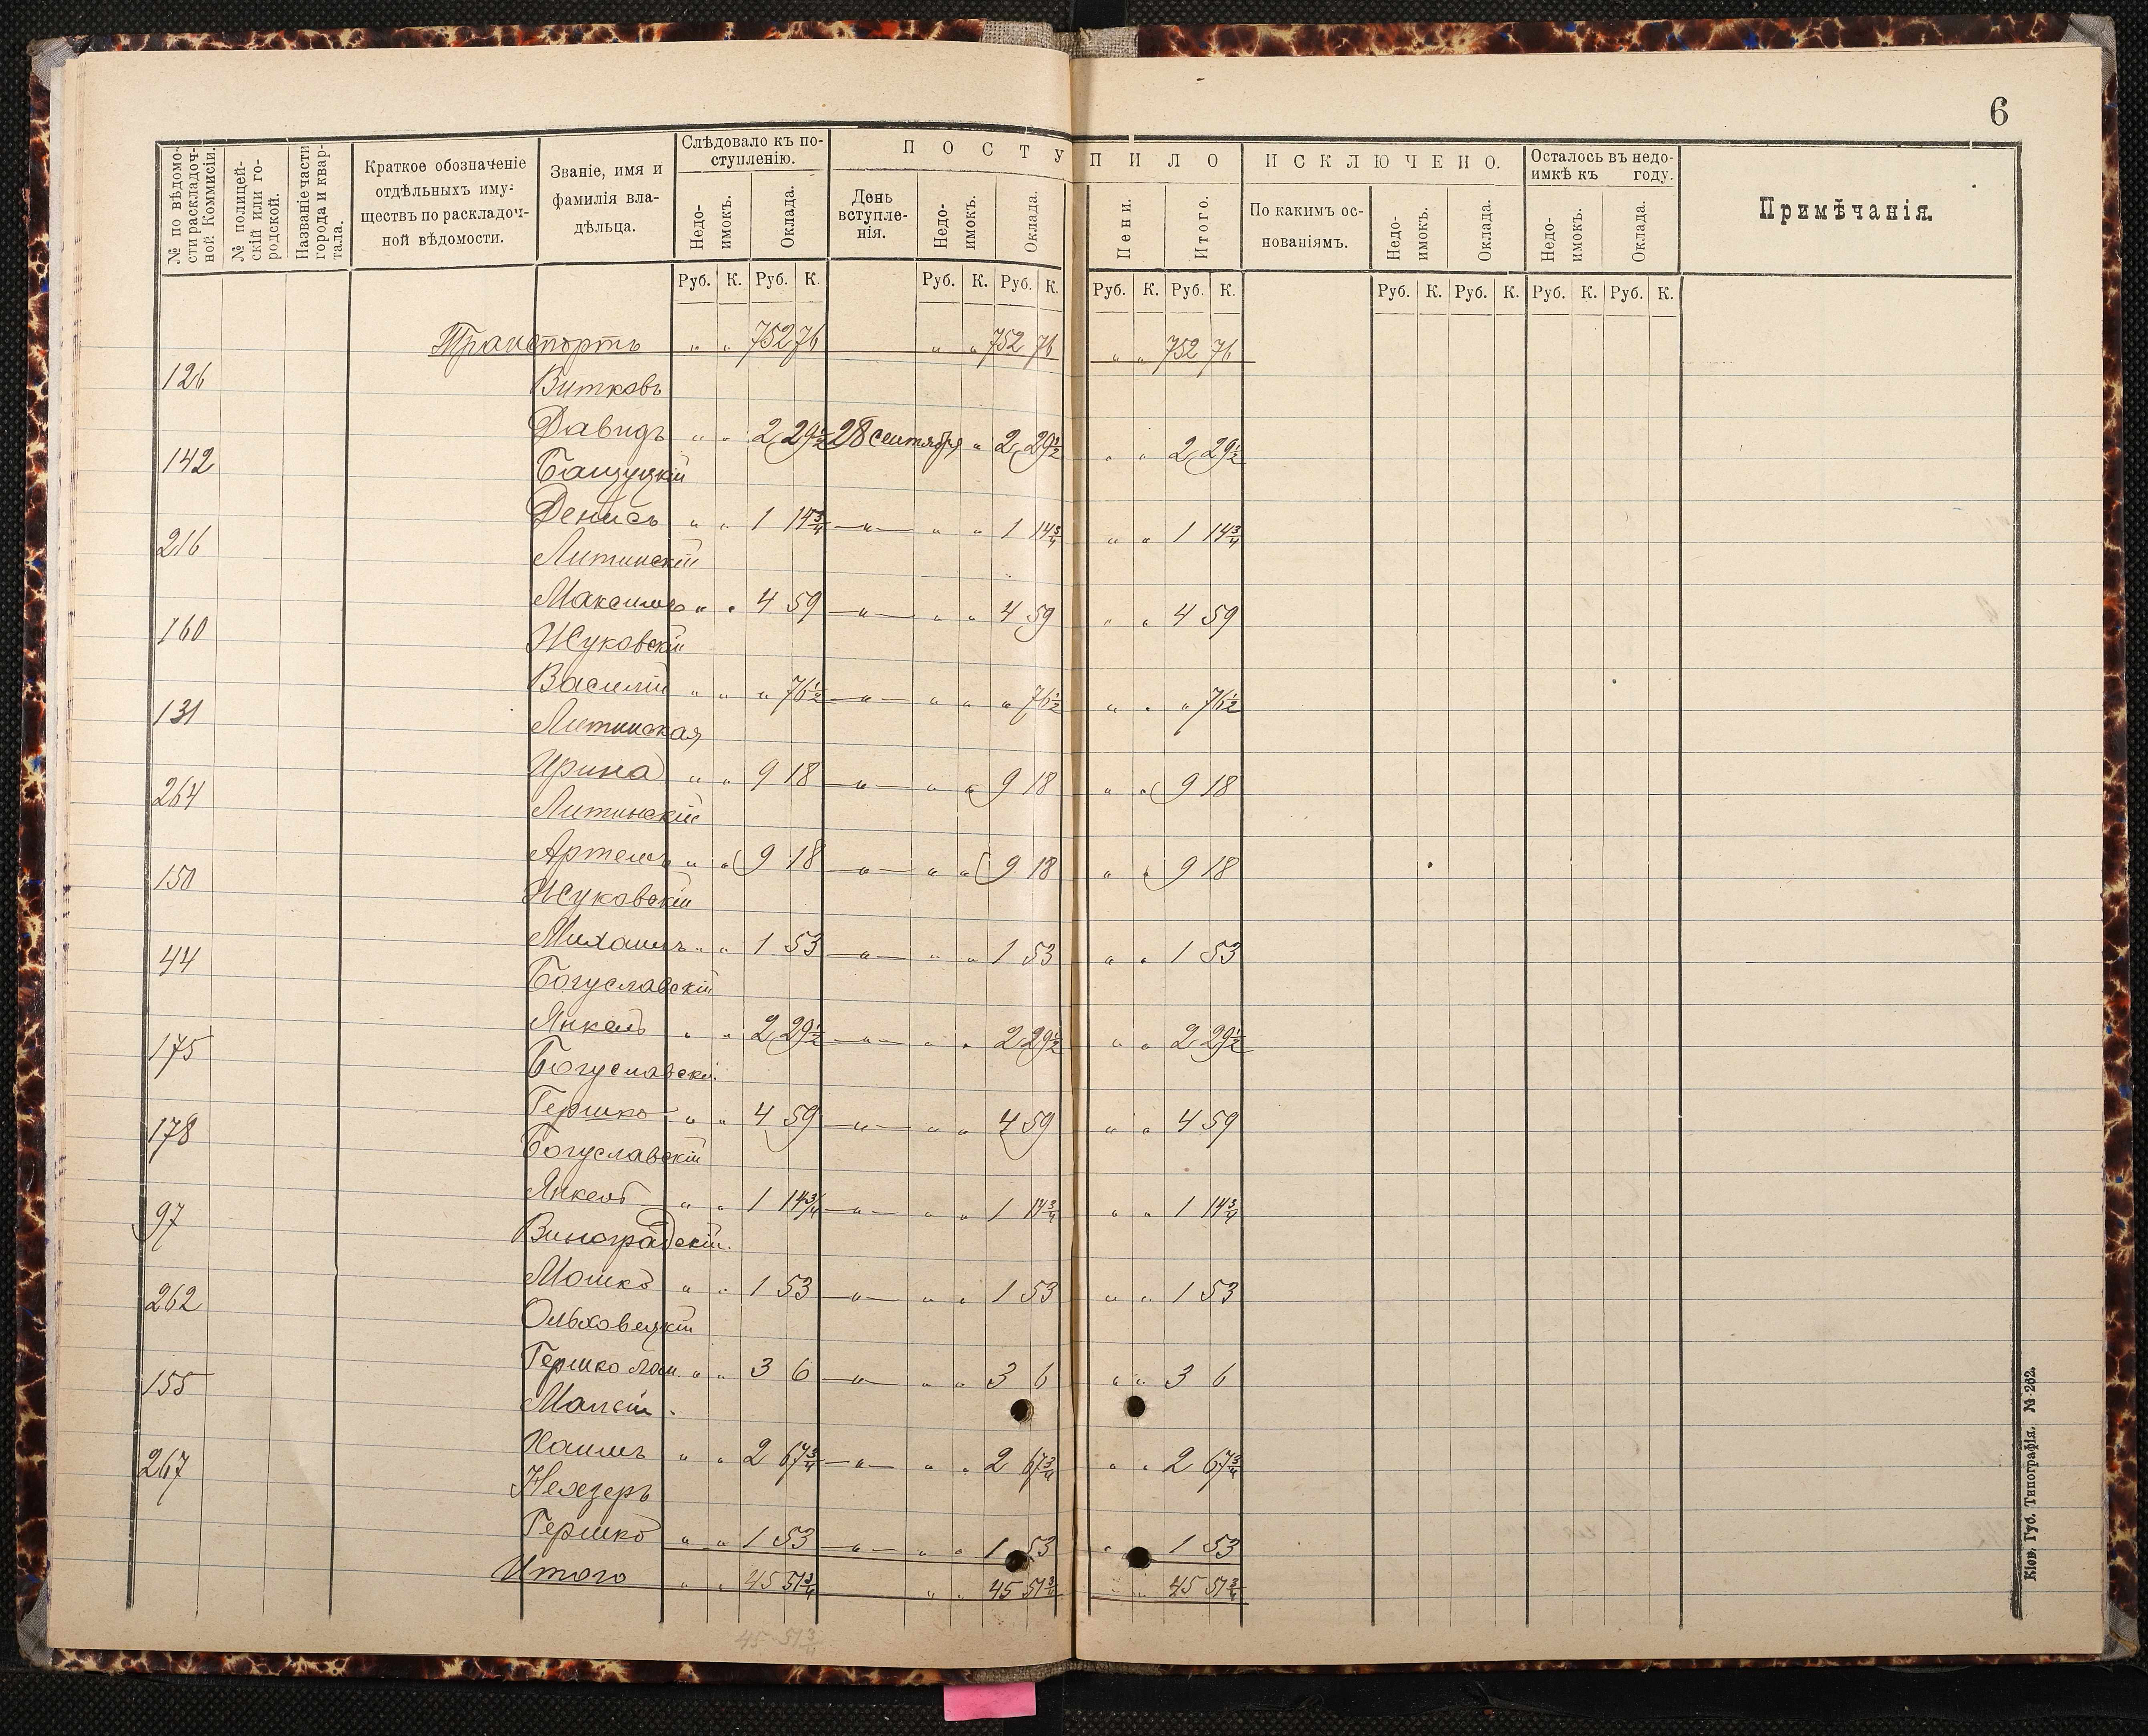 6
№ по вѣдомости раскладочной Коммисіи.
№ полицейскій или городской.
Названіе части города и квартала.
Краткое обозначеніе
отдѣльныхъ иму-
ществъ по раскладоч-
ной вѣдомости.
Званіе, имя и
фамилія вла-
дѣльца.
Слѣдовало къ по-
ступленію.
Недо-
имокъ.
Оклада.
П О С Т У П И Л О
День
вступле-
нія.
Недо-
имокъ.
Оклада.
Пени.
Итого.
И С К Л Ю Ч Е Н О.
По какимъ ос-
нованіямъ.
Недо-
имокъ.
Оклада.
Осталось въ недо-
имкѣ къ году.
Недо-
имокъ.
Оклада.
Примѣчанія.
Руб. К. Руб. К. Руб. К. Руб. К. Руб. К. Руб. К. Руб. К. Руб. К. Руб. К. Руб. К.
Транспортъ " " 752 76 " " 752 76 " " 752 76
126 Витковъ
Давидъ " " 2 29½ 28 сентября " 2 29½ " " 2 29½
142 Бащуцкій
Денисъ " " 1 14¾ —"— " " 1 14¾ " " 1 14¾
216 Литинскій
Максимъ " " 4 59 —"— " " 4 59 " " 4 59
160 Жуковскій
Василій " " " 76½ —"— " " " 76½ " " " 76½
131 Литинская
Ирина " " 9 18 —"— " " 9 18 " " 9 18
264 Литинскій
Артемъ " " 9 18 —"— " " 9 18 " " 9 18
150 Жуковскій
Михаилъ " " 1 53 —"— " " 1 53 " " 1 53
44 Богуславскій
Янкель " " 2 29½ —"— " " 2 29½ " " 2 29½
175 Богуславскій
Гершко " " 4 59 —"— " " 4 59 " " 4 59
178 Богуславскій
Янкель " " 1 14¾ —"— " " 1 14¾ " " 1 14¾
97 Виноградскій.
Мошко " " 1 53 —"— " " 1 53 " " 1 53
262 Ольховецкій
Гершко " " 3 6 —"— " " 3 6 " " 3 6
155
Хаимъ " " 2 67¾ —"— " " 2 67¾ " " 2 67¾
267
Гершко " " 1 53 —"— " " 1 53 " " 1 53
Итого " " 45 51¾ " " 45 51¾ " " 45 51¾
45 51¾
Кіев. Губ. Типографія. № 262.